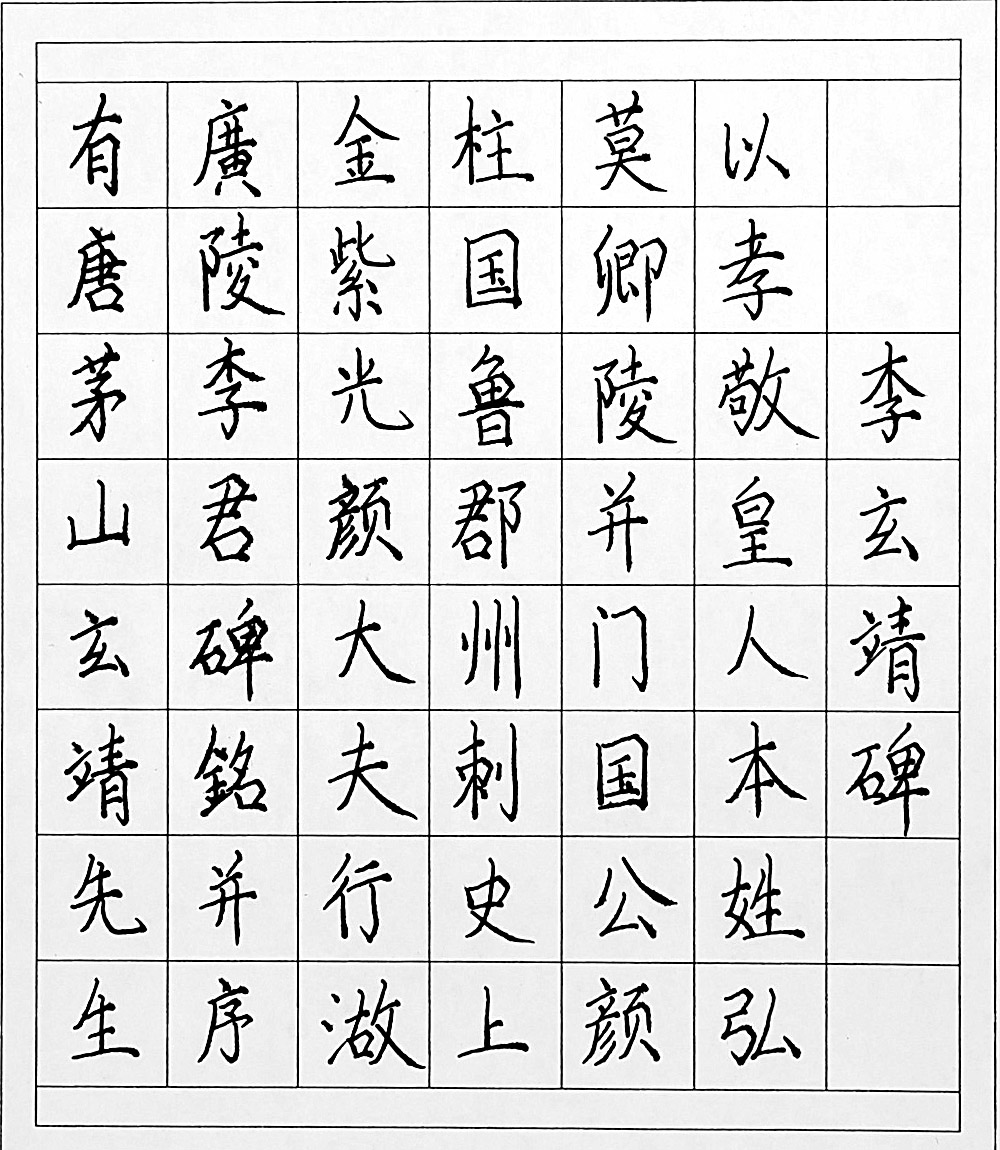 李玄靖碑
以孝敬皇人本姓弘
莫卿陵并门国公颜
柱国鲁郡州刺史上
金紫光颜大夫行
廣陵李君碑銘并序
有唐茅山玄靖先生